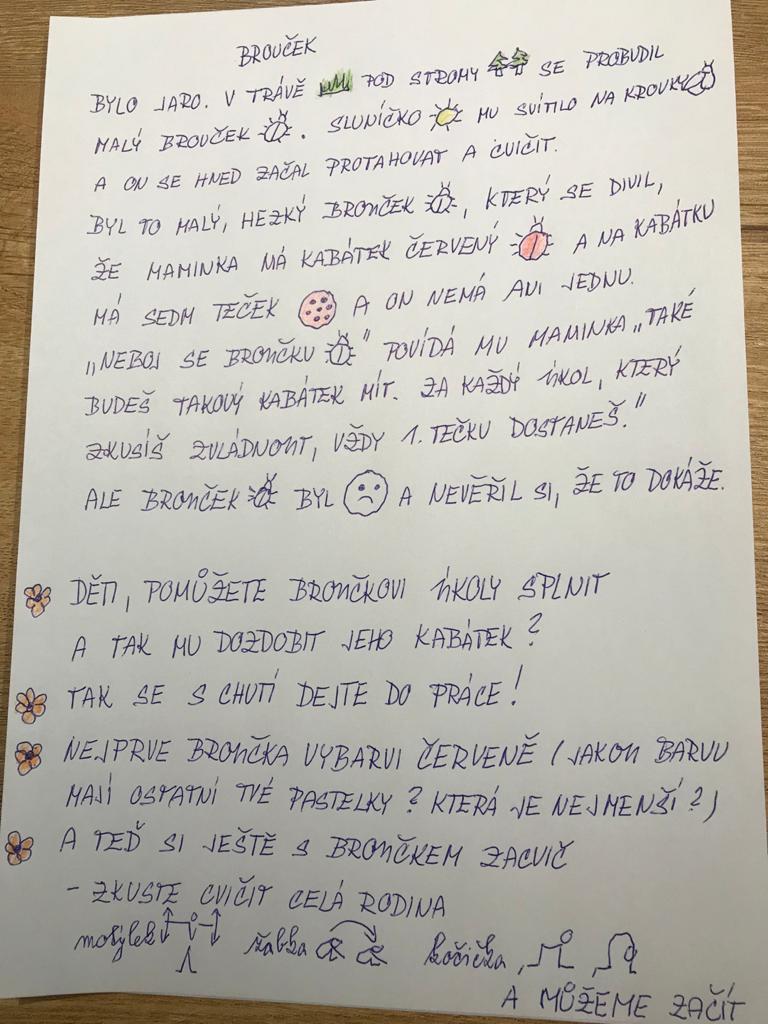 BROUČEK
BYLO JARO. V TRÁVĚ POD STROMY SE PROBUDIL
MALÝ BROUČEK. SLUNÍČKO MU SVÍTILO NA KROVKY
A ON SE HNED ZAČAL PROTAHOVAT A CVIČIT.
BYL TO MALÝ, HEZKÝ BROUČEK, KTERÝ SE DIVIL,
ŽE MAMINKA MÁ KABÁTEK ČERVENÝ A NA KABÁTKU
MÁ SEDM TEČEK A ON NEMÁ ANI JEDNU.
„NEBOJ SE BROUČKU" POVÍDÁ MU MAMINKA „TAKÉ
BUDEŠ TAKOVÝ KABÁTEK MÍT. ZA KAŽDÝ ÚKOL, KTERÝ
ZKUSÍŠ ZVLÁDNOUT, VŽDY 1. TEČKU DOSTANEŠ."
ALE BROUČEK BYL A NEVĚŘIL SI, ŽE TO DOKÁŽE.
DĚTI, POMŮŽETE BROUČKOVI ÚKOLY SPLNIT
A TAK MU DOZDOBIT JEHO KABÁTEK?
TAK SE S CHUTÍ DEJTE DO PRÁCE!
NEJPRVE BROUČKA VYBARVI ČERVENĚ (JAKOU BARVU
MAJÍ OSTATNÍ TVÉ PASTELKY? KTERÁ JE NEJMENŠÍ?)
A TEĎ SI JEŠTĚ S BROUČKEM ZACVIČ
- ZKUSTE CVIČIT CELÁ RODINA
motýlek žabka kočička,
A MŮŽEME ZAČÍT